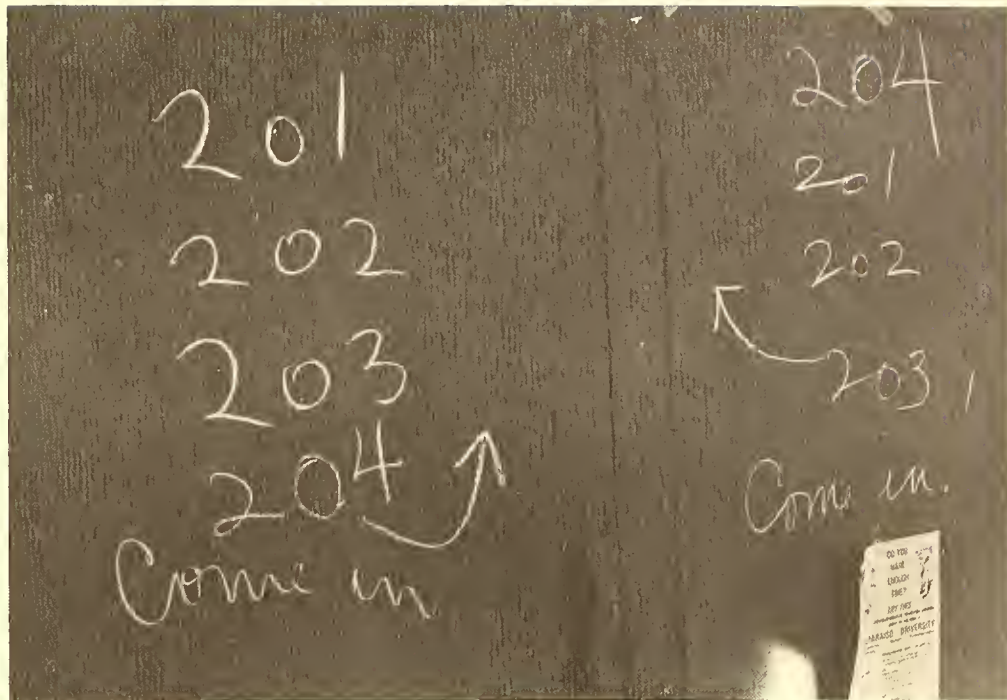 201
202
203
204
Come in
204
201
202
203
Come in.
DO YOU
HAVE
ENOUGH
TIME?
UNIVERSITY